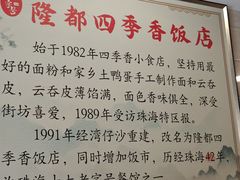 隆都四季香饭店
始于1982年四季香小食店，坚持用最
好的面粉和家乡土鸭蛋手工制作面和云吞
皮，云吞皮薄馅满，面色香味俱全，深受
街坊喜爱，1989年受访珠海特区报。
1991年经湾仔沙重建，改名为隆都四
季香饭店，同时增加饭市，历经珠海42年，